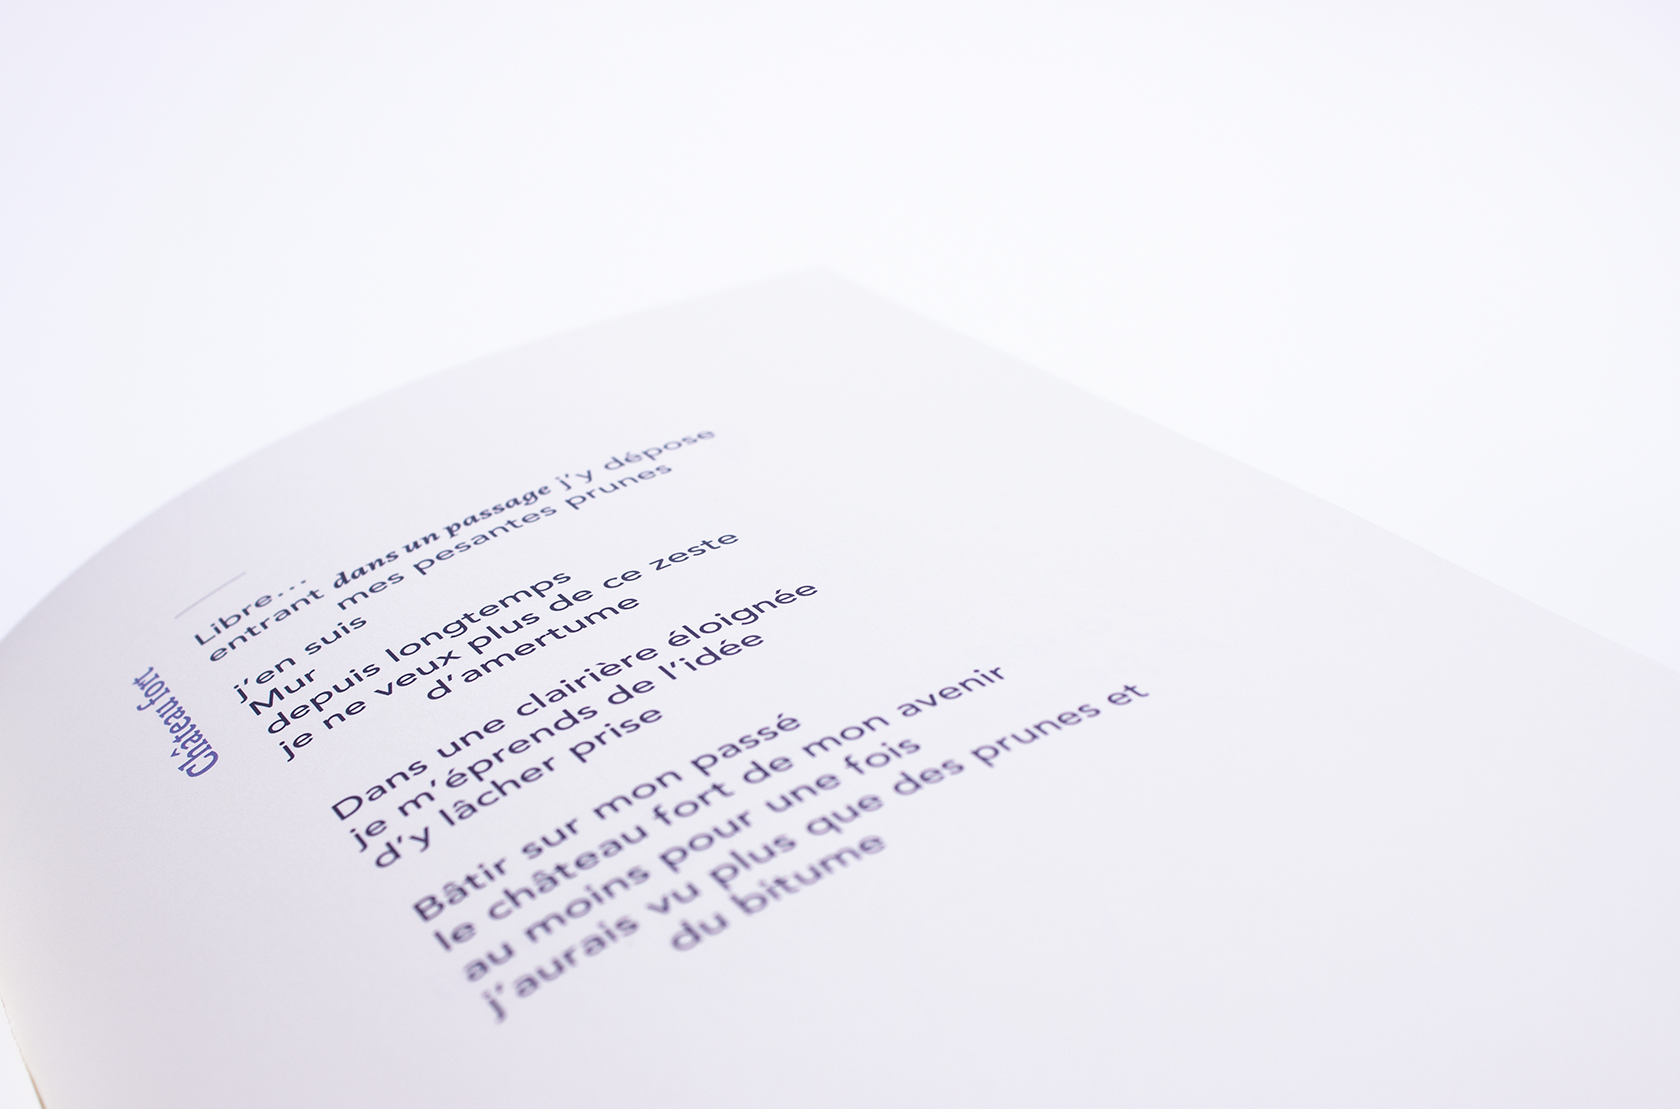 Château fort
Libre...
entrant dans un passage j'y dépose
mes pesantes prunes
j'en suis
Mur
depuis longtemps
je ne veux plus de ce zeste
d'amertume
Dans une clairière éloignée
je m'éprends de l'idée
d'y lâcher prise
Bâtir sur mon passé
le château fort de mon avenir
au moins pour une fois
j'aurais vu plus que des prunes et
du bitume